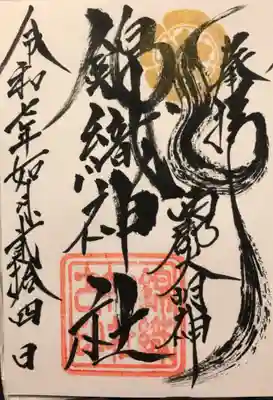 奉拝
錦織神社
令和七年如月貳拾四日